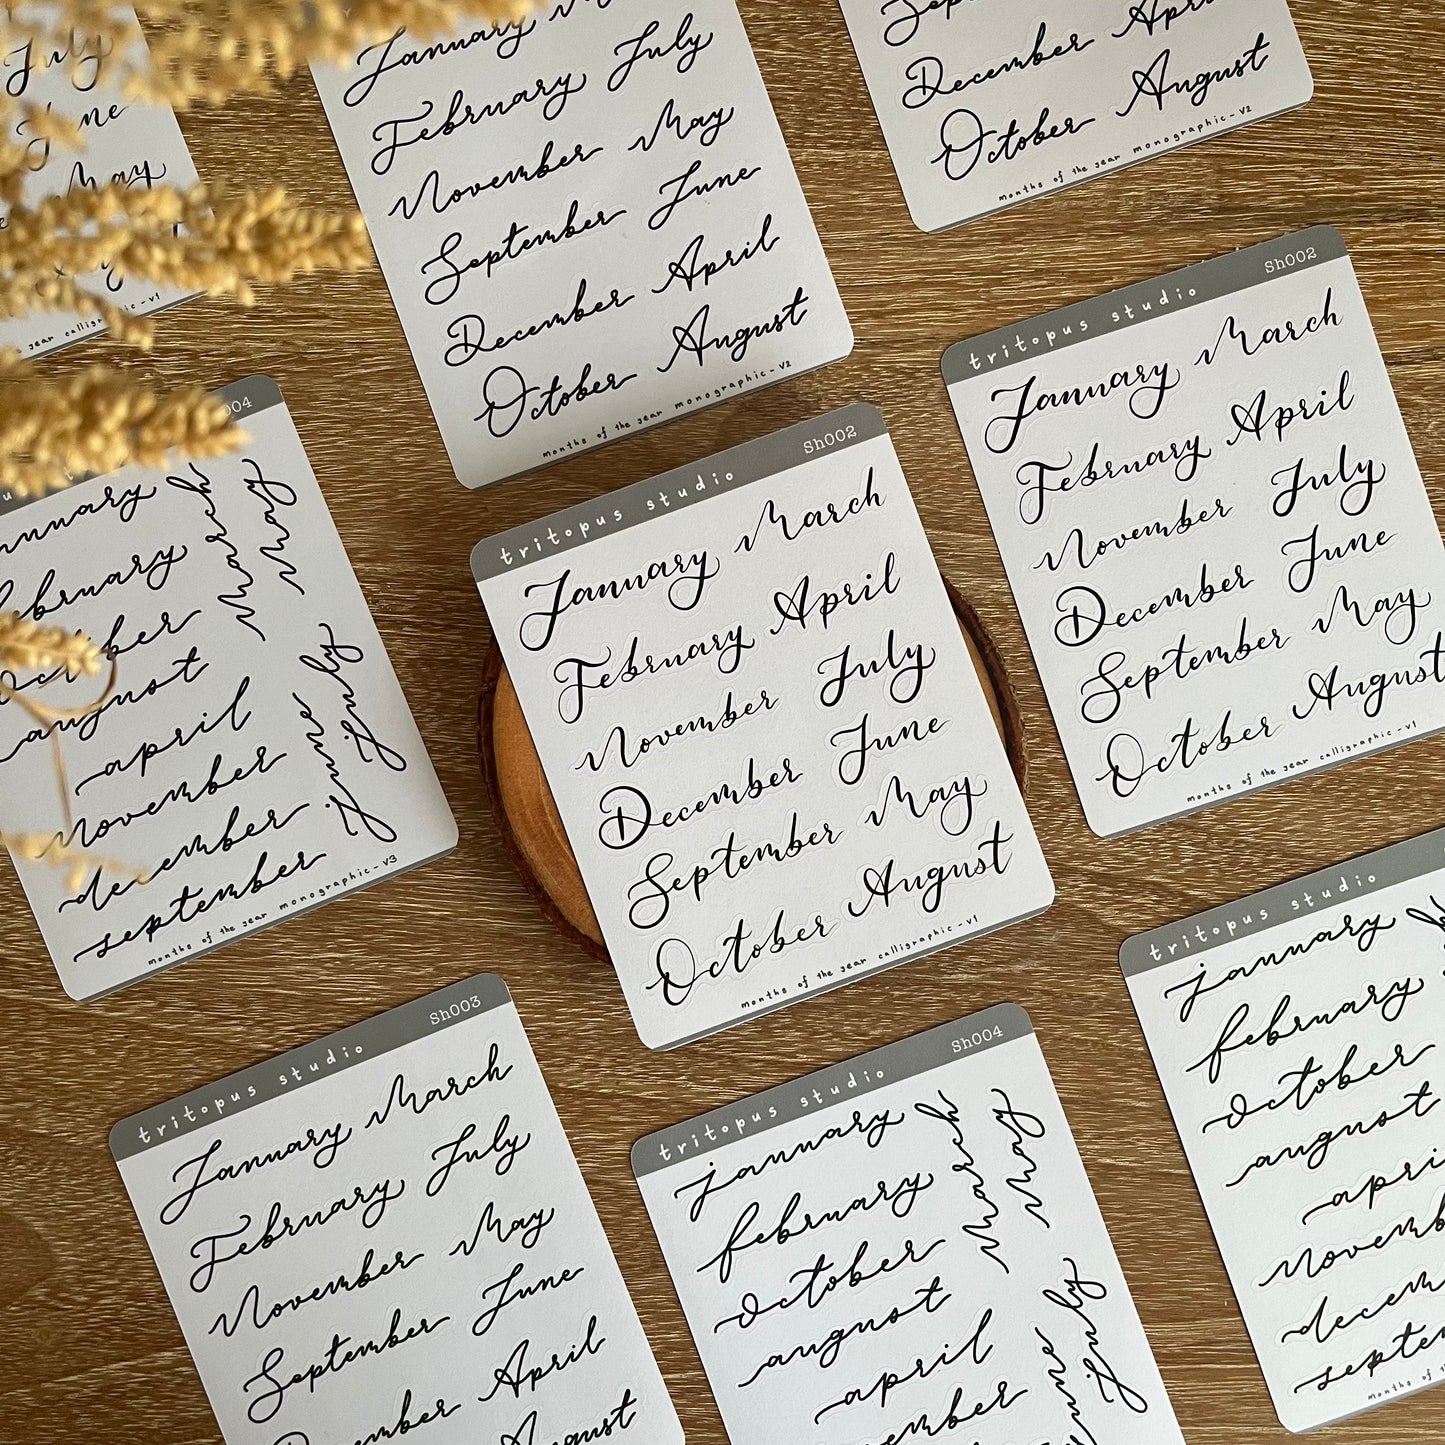 July
June
May
year calligraphic - v1
January
February July
November May
September June
December April
October August
months of the year monographic - v2
December April
October August
months of the year monographic - v2
tritopus studio Sh002
January March
February April
November July
December June
September May
October August
months of the year calligraphic - v1
tritopus studio Sh002
January March
February April
November July
December June
September May
October August
months of the year calligraphic - v1
March
May
august
april
november
december
september
june
july
months of the year monographic - v3
tritopus studio Sh003
January March
February July
November May
September June
December April
August
tritopus studio Sh004
january
february
october
august
april
March
May
june
july
tritopus studio
january
february
october
august
months of the